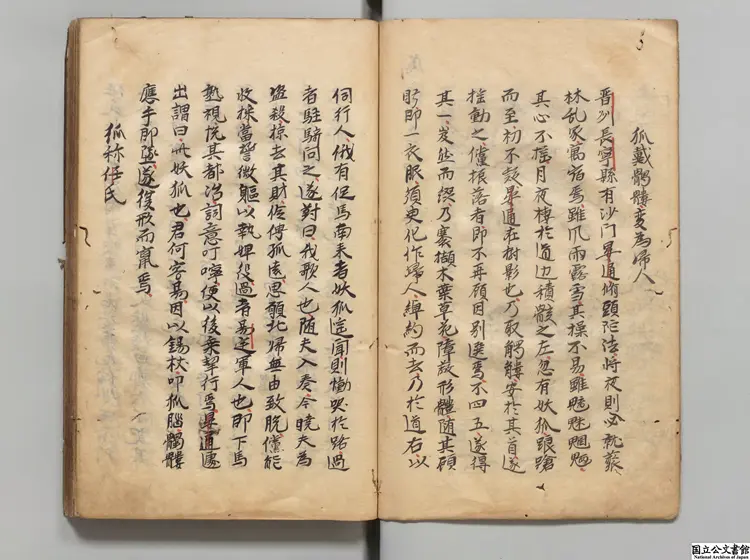 狐戴髑髏変為婦人
晋州長寧縣有沙门晏通脩頭陀法将夜則必就藂
林乱冢寓宿焉雖風雨露雪其操不易雖魑魅魍魎
其心不揺月夜棲於道边積骸之左忽有妖狐踉蹌
而至初不疑晏通在樹影也乃取髑髏安於其首遂
揺動之儻振落者即不再顧因別選焉不四五遂得
其一岌然而綴乃褰擷木葉草花障蔽形體随其顧
盻即一衣服須臾化作婦人綽約而去乃於道右以
伺行人俄有促馬南来者妖狐遥聞則慟哭於路過
者駐騎問之遂對曰我歌人也随夫入奏今曉夫為
盗殺掠去其財伶俜孤遠思願北帰無由致脱儻能
收採當誓微軀以執婢役過者易定軍人也即下馬
熟視悦其都冶詞意叮嚀便以後乗挈行焉晏通遽
出謂曰此妖狐也君何容易因以錫杖叩狐脳髑髏
應手即墜遂復形而竄焉
狐称任氏
国立公文書館
National Archives of Japan